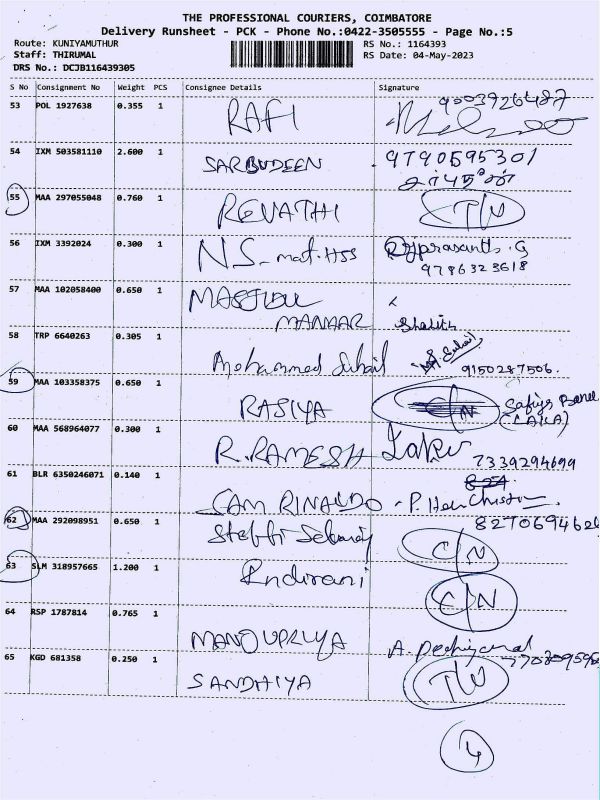 THE PROFESSIONAL COURIERS, COIMBATORE
Delivery Runsheet - PCK - Phone No.:0422-3505555 - Page No.:5
Route: KUNIYAMUTHUR RS No.: 1164393
Staff: THIRUMAL RS Date: 04-May-2023
DRS No.: DCJB116439305
S No Consignment No Weight PCS Consignee Details Signature
53 POL 1927638 0.355 1 RAFI 9003926487
54 IXM 503581110 2.600 1 SARBUDEEN 9790595301
சர்புதீன்
55 MAA 297055048 0.760 1 REVATHI
56 IXM 3392024 0.300 1 NS-mat.HSS prasanth.G
9786323618
57 MAA 102058400 0.650 1
MANMAR
58 TRP 6640263 0.305 1 Mohammed Suhail Suhail
9150287506.
59 MAA 103358375 0.650 1 RASIYA
60 MAA 568964077 0.300 1 R.RAMESH
7339294699
61 BLR 6350246071 0.140 1 SAM RINALDO
62 MAA 292098951 0.650 1 C/N
63 SLM 318957665 1.200 1 Indirani C/N
64 RSP 1787814 0.765 1 MANOUPRIYA
65 KGD 681358 0.250 1 SANDHIYA
4